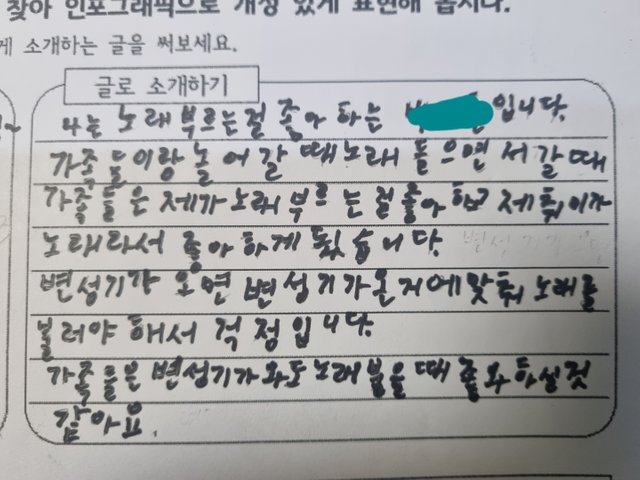 찾아 인포그래픽으로 개성 있게 표현해 봅시다.
게 소개하는 글을 써보세요.
글로 소개하기
나는 노래 부르는걸 좋아 하는 입니다.
가족들이랑 놀어 갈 때 노래 들으면서 갈때
가족들은 제가 노래 부르는 걸 좋아 하고 제 춰이가
노래라서 좋아하게 됬습니다.
변성기가 오면 변성기가온지에맞춰 노래를
불러야 해서 걱정입니다.
가족들은 변성기가와도 노래 불을때 좋와 하실것
같아요.